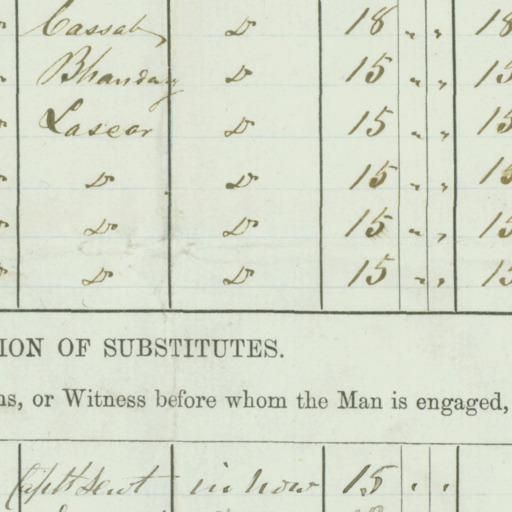 Cassab Do 18 " " 18
Bhandary Do 15 " " 15
Lascar Do 15 " " 15
Do Do 15 " " 15
Do Do 15 " " 15
Do Do 15 " " 15
ION OF SUBSTITUTES.
ns, or Witness before whom the Man is engaged,
in how 15 " "